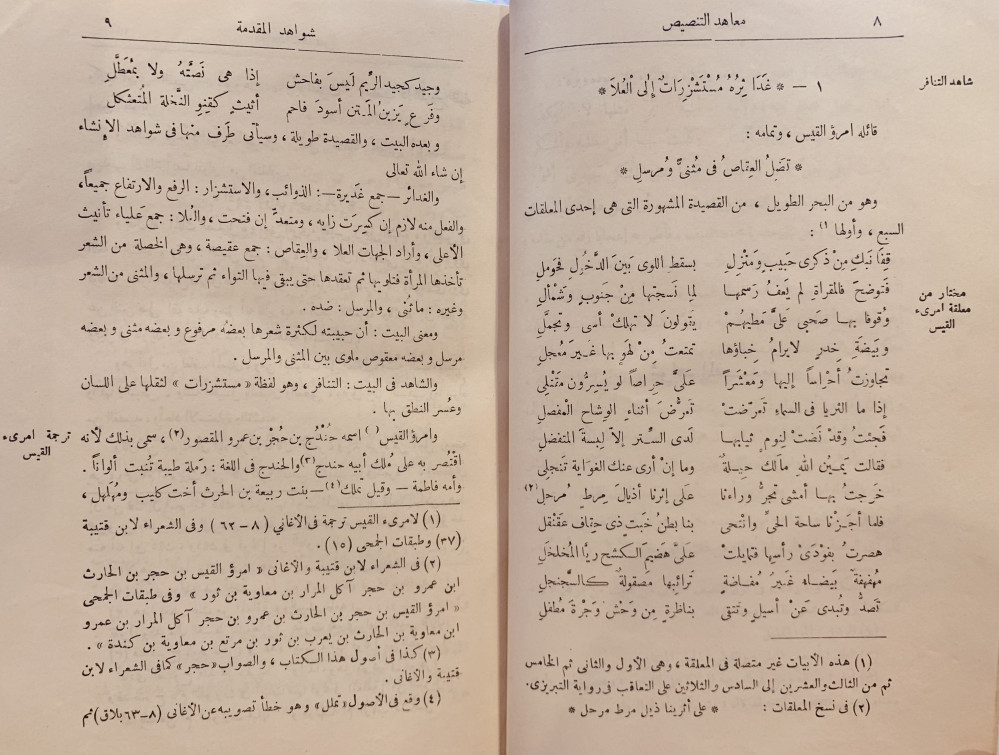 ٨ معاهد التنصيص
شاهد التنافر
١ — * غَدَائِرُهُ مُسْتَشْزِرَاتٌ إِلَى الْعُلَا *
قائله امرؤ القيس ، وتمامه :
* تَضِلُّ العِقَاصُ فى مُثنىًّ ومُرسلِ *
وهو من البحر الطويل ، من القصيدة المشهورة التى هى إحدى المعلقات
السبع ، وأولها (١) :
مختار من
معلقة امرىء
القيس
قِفَا نَبْكِ مِنْ ذكرى حَبيبٍ ومَنْزِلِ بسقط اللوى بَينَ الدَّخُولِ فحَوملِ
فَتوضحَ فالمقراةِ لم يَعفُ رَسمها لما نَسجتها مِنْ جَنوبٍ وشَمْألِ
وُقوفا بها صَحبى علىَّ مَطيهُمْ يَقولونَ لا تهلكْ أسى وتجملِ
وبَيضَةِ خدرٍ لايرامُ خِباؤها تمتعتُ مِنْ لهْوٍ بها غَيرَ مُعجلِ
تجاوزتُ أحْرَاسًا إليها ومَعْشَرًا علىَّ حِرَاصًا لو يُسِرُّون مَقْتلِى
إذا ما الثريا فى السماءِ تَعرَّضتْ تَعرُّضَ أثناءِ الوِشاحِ المفصلِ
فَجئتُ وقدْ نَضَتْ لِنومٍ ثيابها لَدى السِّترِ إلاّ لِبسةَ المتفضلِ
فقالت يَمينُ اللهِ مالَكَ حِيلةٌ وما إنْ أرى عنكَ الغوَايةَ تَنجلِى
خَرجتُ بها أمشى تجرُّ وراءَنا علَى إثرنا أذيالَ مِرطٍ مُرحلِ (٢)
فلما أجَزْنا ساحةَ الحىِّ وانتحى بنا بطنُ خَبْتٍ ذى حِقافٍ عَقنْقلِ
هصرتُ بفَوْدَىْ رأسِها فتمايلتْ علىَّ هَضيمَ الكَشحِ ريَّا المُخلخَلِ
مُهفهفةٌ بيضاء غَيرَ مُفاضَةٍ تَرائبُها مَصقولةٌ كالسَّجنجلِ
تَصدُّ وتُبدى عَنْ أسيلٍ وتتقى بناظرةٍ مِن وَحْش وَجْرةَ مُطفلِ
(١) هذه الأبيات غير متصلة فى المعلقة ، وهى الأول والثانى ثم الخامس
ثم من الثالث والعشرين إلى السادس والثلاثين على التعاقب فى رواية التبريزى.
(٢) فى نسخ المعلقات : * على أثرينا ذيل مرط مرحل *
شواهد المقدمة ٩
وجيدٍ كجيد الرِّيم لَيسَ بفاحش إذا هى نَصَّتْهُ ولا بمُعَطَّلِ
وفَرعٍ يَزينُ المَتن أسودَ فاحم أثيثٍ كقِنوِ النَّخلة المُتعثكلِ
وبعده البيت ، والقصيدة طويلة ، وسيأتى طرَف منها فى شواهد الإنشاء
إن شاء الله تعالى
والغدائر — جمع غَديرة—: الذوائب، والاستشزار : الرفع والارتفاع جميعاً،
والفعل منه لازم إن كسِرَت زايه ، ومتعدٍّ إن فتحت ، والعُلا : جمع عَلياء تأنيث
الأعلى ، وأراد الجهات العلا ، والعِقاص : جمع عقيصة ، وهى الخصلة من الشعر
تأخذها المرأة فتلويها ثم تعقدها حتى يبقى فيها التواء ثم ترسلها ، والمثنى من الشعر
وغيره : ماثُنى ، والمرسل : ضده .
ومعنى البيت : أن حبيبته لكثرة شعرها بعضه مرفوع وبعضه مثنى وبعضه
مرسل وبعضه معقوص ملوى بين المثنى والمرسل .
والشاهد فى البيت : التنافر ، وهو لفظة « مستشزرات » لثقلها على اللسان
وعُسر النطق بها .
ترجمة امرىء
القيس
وامرؤ القيس (١) اسمه حُنْدُج بن حُجْر بن عمرو المقصور (٢) ، سمى بذلك لأنه
اقْتُصر به على مُلك أبيه حندج (٣) والحندج فى اللغة : رَملة طيبة تُنبت ألوانًا .
وأمه فاطمة — وقيل تَملك (٤) — بنت ربيعة بن الحرث أخت كليب ومُهلهل ،
(١) لامرىء القيس ترجمة فى الأغانى (٨ – ٦٢) وفى الشعراء لابن قتيبة
(٣٧) وطبقات الجمحى (١٥) .
(٢) فى الشعراء لابن قتيبة والأغانى « امرؤ القيس بن حجر بن الحارث
ابن عمرو بن حجر آكل المرار بن معاوية بن ثور » وفى طبقات الجمحى
« امرؤ القيس بن حجر بن الحارث بن عمرو بن حجر آكل المرار بن عمرو
ابن معاوية بن الحارث بن يعرب بن ثور بن مرتع بن معاوية بن كندة » .
(٣) كذا فى أصول هذا الكتاب ، والصواب «حجر» كما فى الشعراء لابن
قتيبة والأغانى .
(٤) وقع فى الأصول «تملل» وهو خطأ تصويبه عن الأغانى (٨–٦٣ بلاق) ثم